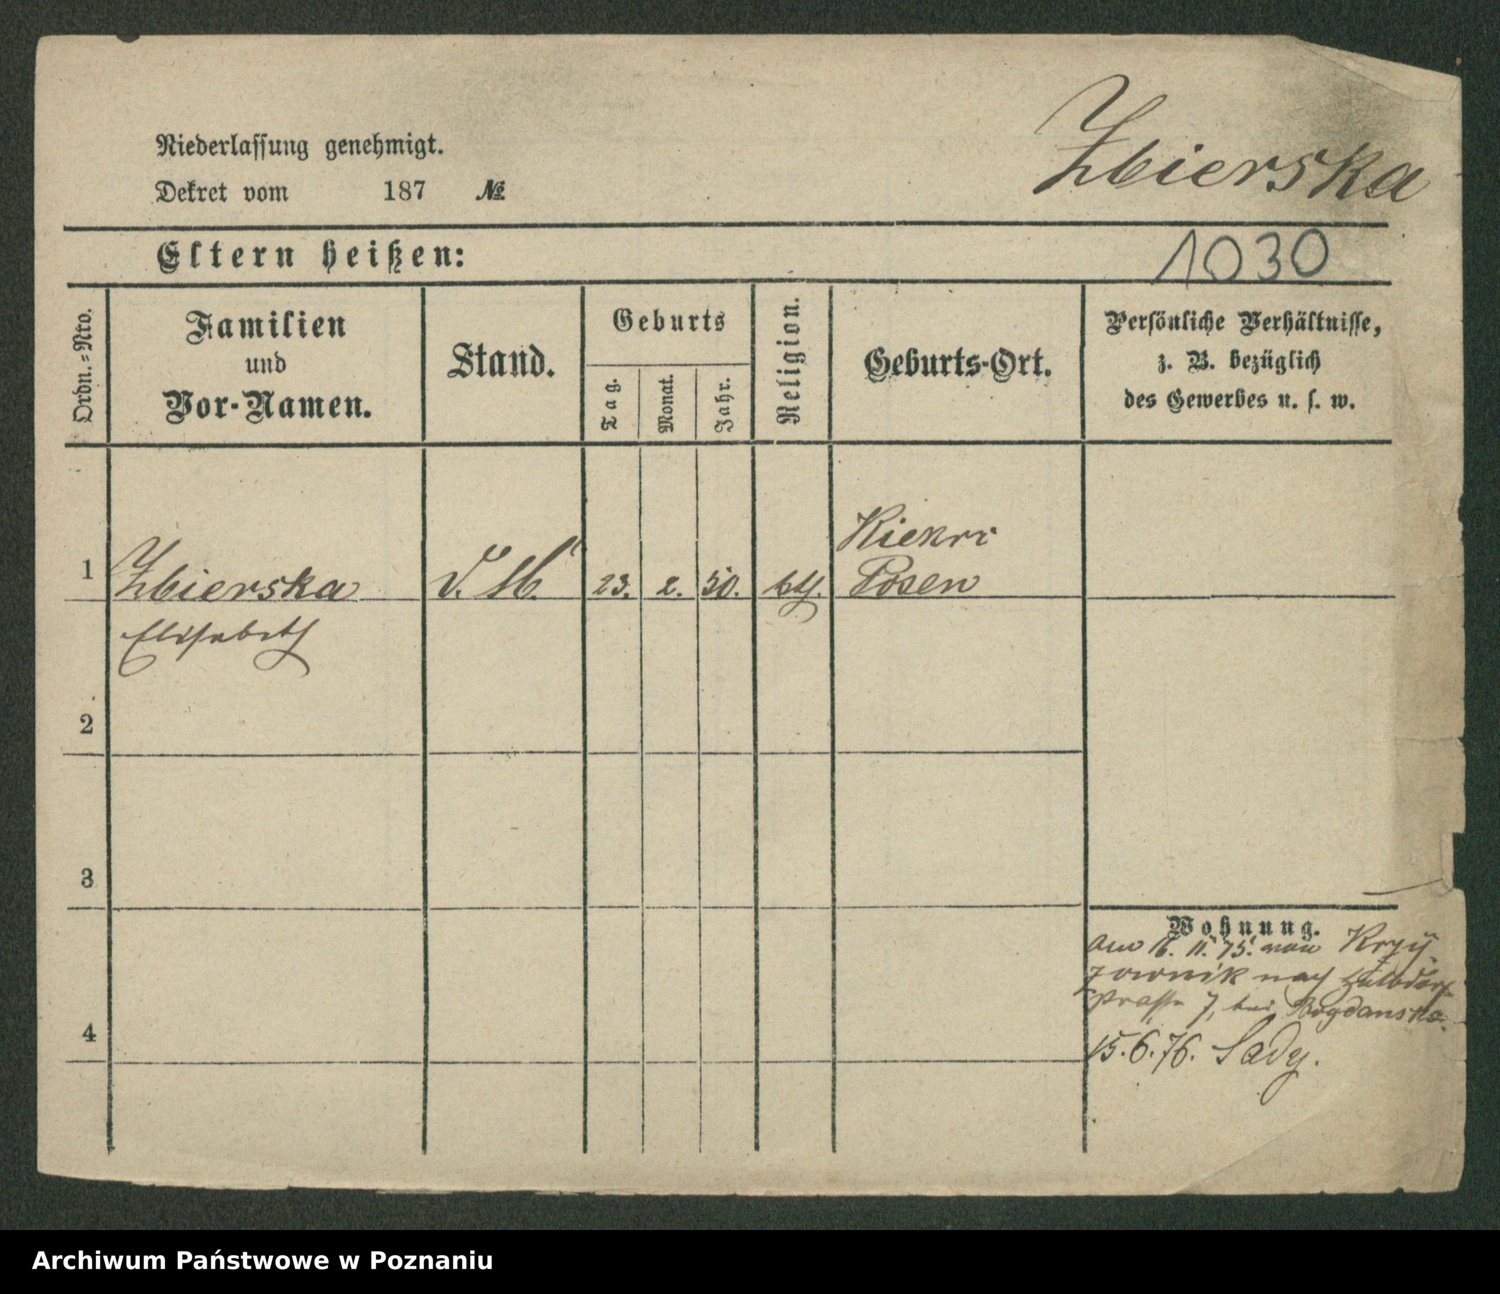 Zbierska
Niederlassung genehmigt.
Dekret vom 187 №
Eltern heißen:
1030
Ordn.=Nro.
Familien
und
Vor-Namen.
Stand.
Geburts
Tag.
Monat.
Jahr.
Religion.
Geburts-Ort.
Persönliche Verhältnisse,
z. B. bezüglich
des Gewerbes u. s. w.
1
Zbierska
Elisabeth
D. M.
23.
2.
50.
kth.
Kiekrz
Posen
2
3
4
Wohnung.
am 16. 11. 75. von Krzy
żownik nach
strasse 7, bei Bogdanska.
15.6.76. Sady.
Archiwum Państwowe w Poznaniu